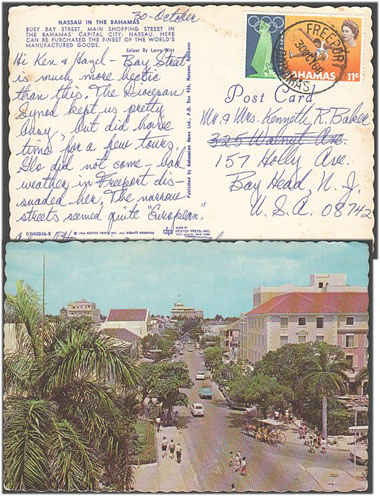 NASSAU IN THE BAHAMAS
BUSY BAY STREET, MAIN SHOPPING STREET IN
THE BAHAMAS' CAPITAL CITY: NASSAU. HERE
CAN BE PURCHASED THE FINEST OF THE WORLD'S
MANUFACTURED GOODS.
Colour By Larry Witt
30-October
Hi Ken & Hazel - Bay Street
is much more hectic
than this. The Diocesan
Synod kept us pretty
busy, but did have
time for a few tours.
Glo did not come - bad
weather in Freeport dis-
suaded her. The narrow
streets seemed quite "European."
DEXTER PRESS, INC.
Published by Bahamas
Nassau, Bahamas
FREEPORT
BAHAMAS
BAHAMAS 11c
Post Card
Mr. & Mrs. Kenneth K. Baker
325 Walnut Ave.
157 Holly Ave.
Bay Head, N.J.
U.S.A. 08742